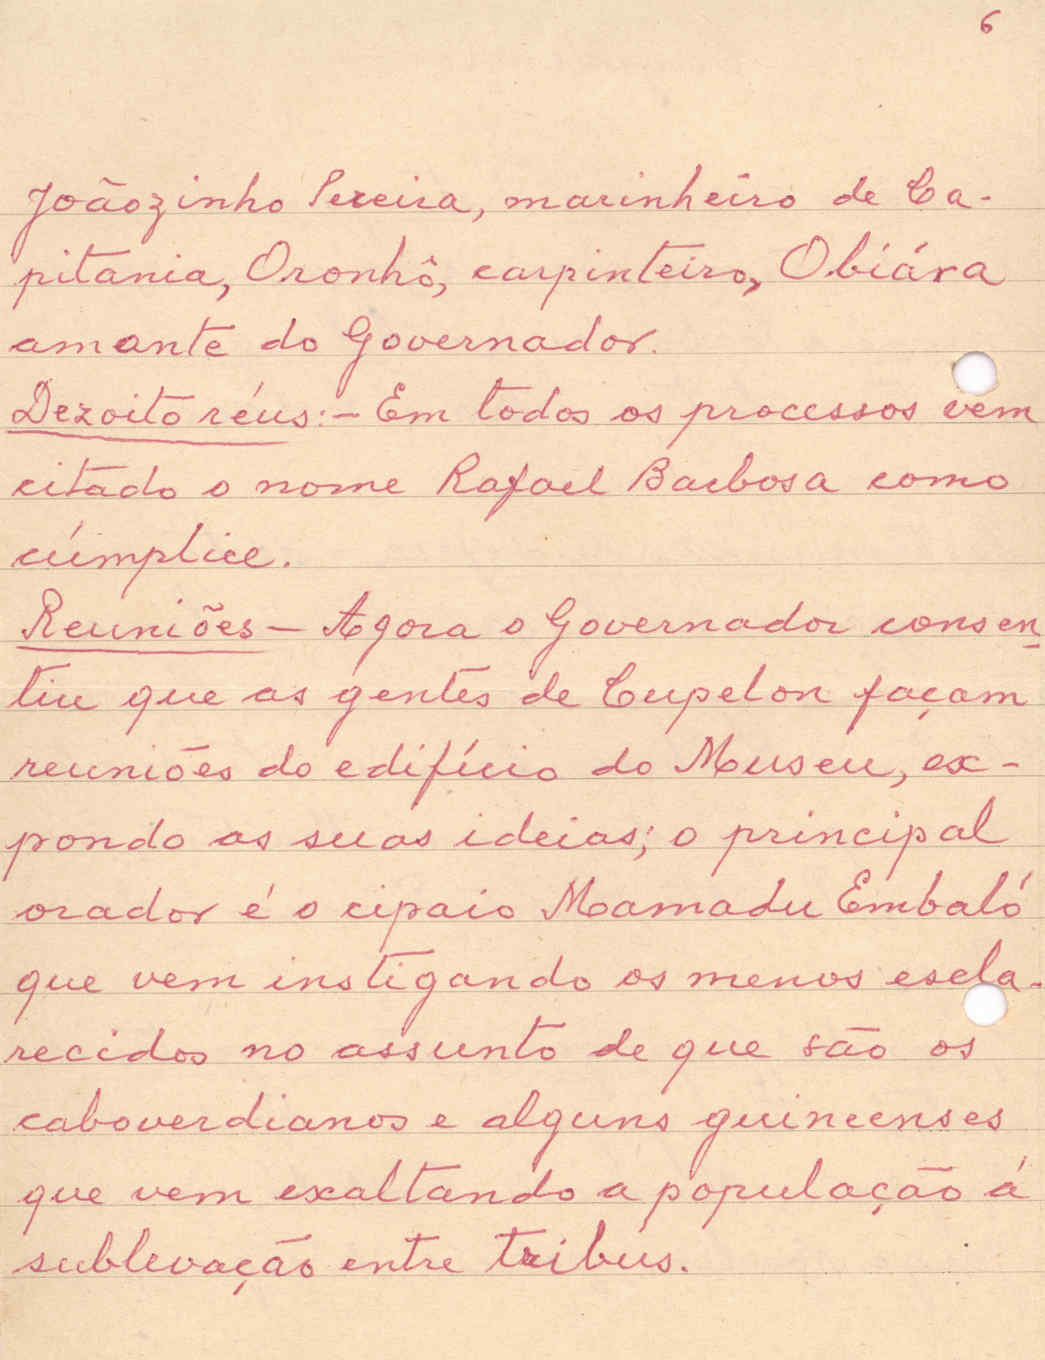 6
Joãozinho Pereira, marinheiro de Ca-
pitania, Oronhô, carpinteiro, Obiára
amante do Governador.
Dezoito réus:- Em todos os processos vem
citado o nome Rafael Barbosa como
cúmplice.
Reuniões - Agora o Governador consen-
tiu que as gentes de Cupelon façam
reuniões do edifício do Museu, ex-
pondo as suas ideias; o principal
orador é o cipaio Mamadu Embaló
que vem instigando os menos escla-
recidos no assunto de que são os
caboverdianos e alguns guineenses
que vem exaltando a população á
sublevação entre tribus.